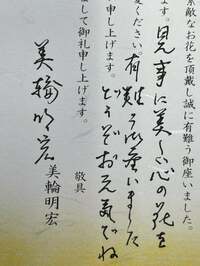 素敵なお花を頂戴し誠に有難う御座いました。
ます。見事に美しい心の花を
有難う御座いました
ください。どうぞお元気でね
し上げます。
して御礼申し上げます。
敬具
美輪明宏
美輪明宏